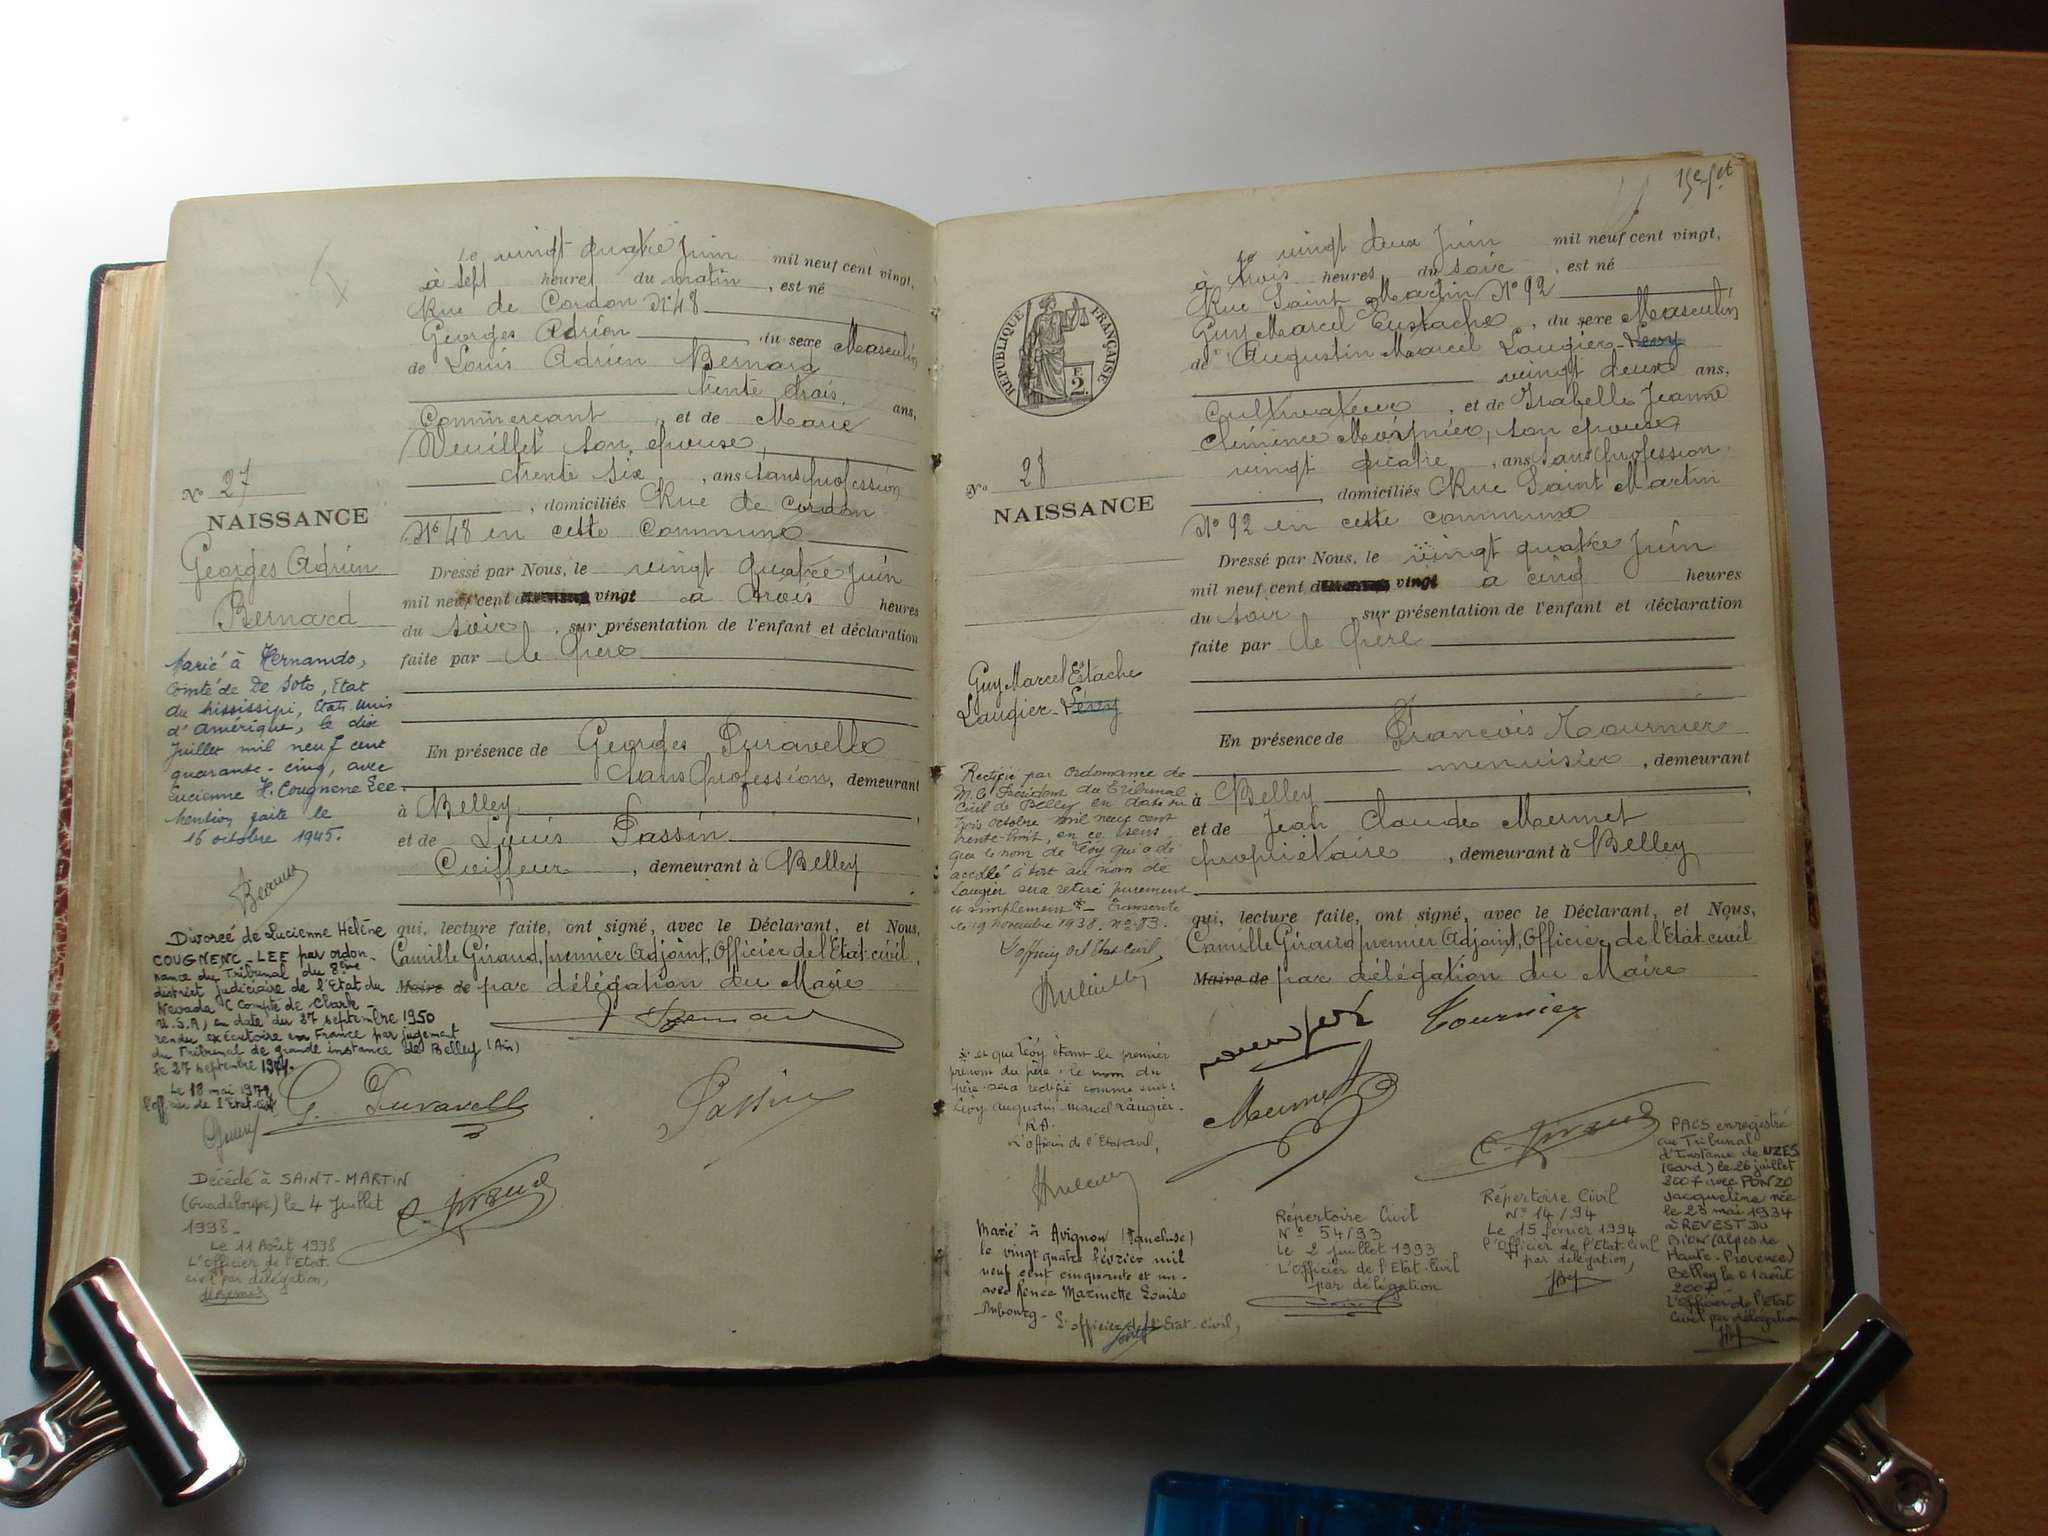 Le vingt quatre Juin mil neuf cent vingt,
à sept heures du matin, est né
Rue de Cordon N° 48
Georges Adrien, du sexe Masculin
de Louis Adrien Bernard
trente trois, ans,
Commerçant, et de Marie
Veuillet son épouse,
trente six, ans sans profession
, domiciliés Rue de Cordon
N° 48 en cette Commune
Dressé par Nous, le vingt quatre Juin
mil neuf cent vingt à trois heures
du soir, sur présentation de l'enfant et déclaration
faite par le Père
En présence de Georges Puravelle
sans profession, demeurant
à Belley
et de Louis Passin
Coiffeur, demeurant à Belley
qui, lecture faite, ont signé, avec le Déclarant, et Nous,
Camille Giraud, premier Adjoint, Officier de l'Etat-civil,
Maire de par délégation du Maire
N° 27
NAISSANCE
Georges Adrien
Bernard
Marié à Hernando,
Comté de De Soto, Etat
du Mississipi, Etats Unis
d'Amérique, le dix
Juillet mil neuf cent
quarante-cinq, avec
Lucienne H. Cougnenc Lee.
Mention faite le
16 octobre 1945.
Divorcé de Lucienne Hélène
COUGNENC-LEE par ordon-
nance du Tribunal du 8ème
district judiciaire de l'Etat du
Nevada (Compté de Clark -
U.S.A) en date du 27 septembre 1950
rendu exécutoire en France par jugement
du Tribunal de grande instance de Belley (Ain)
le 27 septembre
Le 18 mai 1979
l'officier de l'Etat-civil
G. Puravelle
Passin
Décédé à SAINT-MARTIN
(Guadeloupe) le 4 Juillet
1998.
Le 11 Août 1998
L'Officier de l'Etat-
civil par délégation,
C. Giraud
15e f et
Le vingt deux Juin mil neuf cent vingt,
à trois heures du soir, est né
Rue Saint Martin N° 92
Guy Marcel Eustache, du sexe Masculin
de Augustin Marcel Laugier-Levy
vingt deux ans,
Cultivateur, et de Isabelle Jeanne
Clémence Meynier, son épouse,
vingt quatre, ans sans profession
, domiciliés Rue Saint Martin
N° 92 en cette commune
Dressé par Nous, le vingt quatre Juin
mil neuf cent vingt à cinq heures
du soir, sur présentation de l'enfant et déclaration
faite par le Père
En présence de François Tournier
menuisier, demeurant
à Belley
et de Jean Claude Mermet
propriétaire, demeurant à Belley
qui, lecture faite, ont signé, avec le Déclarant, et Nous,
Camille Giraud premier Adjoint, Officier de l'Etat-civil
Maire de par délégation du Maire
RÉPUBLIQUE FRANÇAISE
F.
2.
N° 28
NAISSANCE
Guy Marcel Estache
Laugier-Levy
Rectifié par ordonnance de
M. le Président du Tribunal
Civil de Belley en date du
trois octobre mil neuf cent
trente-huit, en ce sens
que le nom de Léoy qui a été
accollé à tort au nom de
Laugier sera retiré purement
et simplement * - Transcrite
le 19 novembre 1938. n° 83.
L'officier de l'Etat Civil,
* et que Léoy étant le premier
prénom du père, le nom du
père sera rectifié comme suit:
Léoy Augustin Marcel Laugier.
L'officier de l'Etat civil,
Tournier
Mermet
C. Giraud
Marié à Avignon (Vaucluse)
le vingt quatre février mil
neuf cent cinquante et un.
avec Renée Marinette Louise
Dubourg - L'officier de l'Etat-Civil,
Répertoire Civil
N° 54/93
Le 2 juillet 1993
L'Officier de l'Etat-Civil
par délégation
Répertoire Civil
N° 14/94
Le 15 février 1994
l'Officier de l'Etat-Civil
par délégation,
PACS enregistré
au Tribunal
d'Instance de UZES
(Gard) le 26 juillet
2007 avec PONZO
Jacqueline née
le 23 mai 1934
à REVEST DU
BION (Alpes de
Haute-Provence)
Belley le 01 août
2007.
L'Officier de l'Etat
Civil par délégation